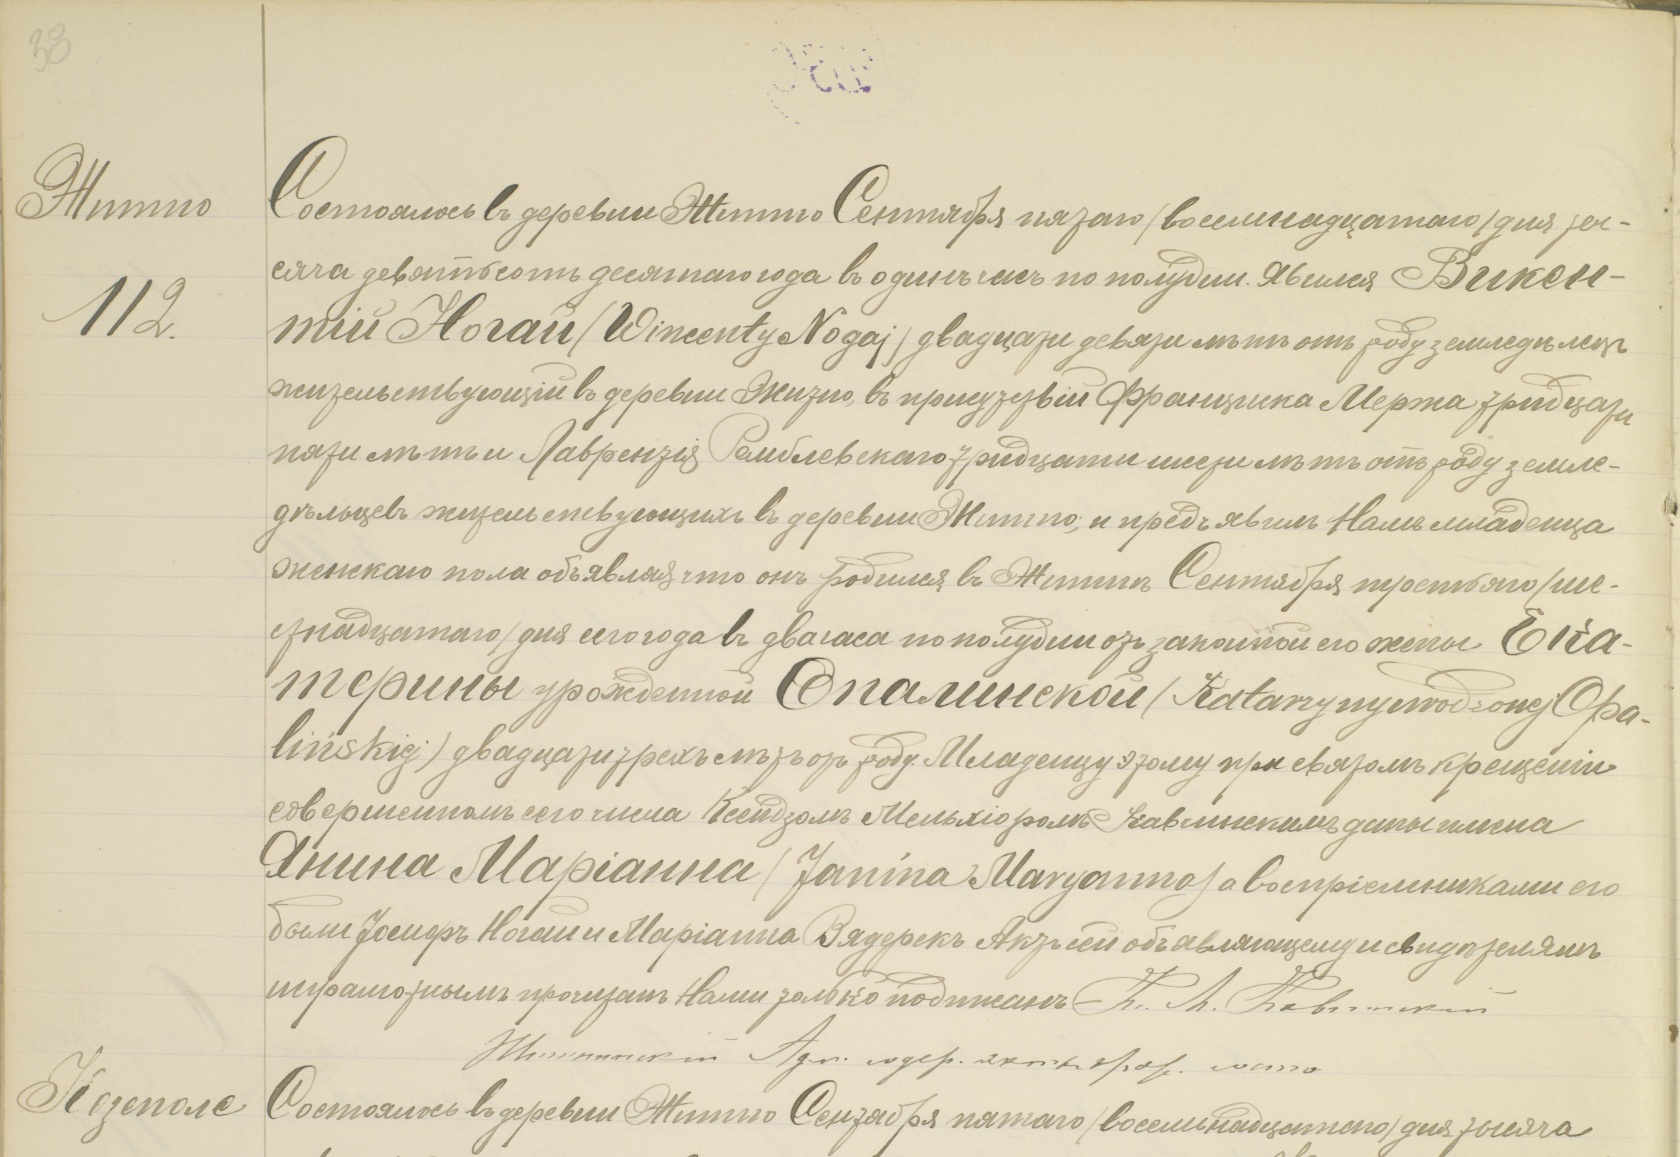 38
Житно
112.
Состоялось въ деревни Житно Сентября пятаго (восемнадцатаго) дня ты-
сяча девятьсотъ десятаго года въ одинъ часъ по полудни. Явился Викен-
тій Ногай (Wincenty Nogaj) двадцати девяти лѣтъ отъ роду земледѣлецъ
жительствующій въ деревни Житно, въ присутствіи Францишка Мержа тридцати
пяти лѣтъ и Лаврентія Рамблевскаго тридцати шести лѣтъ отъ роду земле-
дѣльцевъ жительствующихъ въ деревни Житно, и предъявилъ Намъ младенца
женскаго пола объявляя что онъ родился въ Житнѣ Сентября третьяго (ше-
стнадцатаго) дня сего года въ два часа по полудни отъ законной его жены Ека-
терины урожденной Опалинской (Katarzyny urodzonej Opa-
lińskiej) двадцати трехъ лѣтъ отъ роду. Младенцу этому при святомъ крещеніи
совершенномъ сего числа Ксендзомъ Мельхіоромъ Кавлинскимъ даны имена
Янина Маріанна (Janina Maryanna) а воспріемниками его
были Іосифъ Ногай и Маріанна Вядерекъ Актъ сей объявляющему и свидѣтелямъ
неграмотнымъ прочитанъ Нами только подписанъ К. М. Кавлинскій
Козеполе
Состоялось въ деревни Житно Сентября пятаго (восемьнадцатаго) дня тысяча